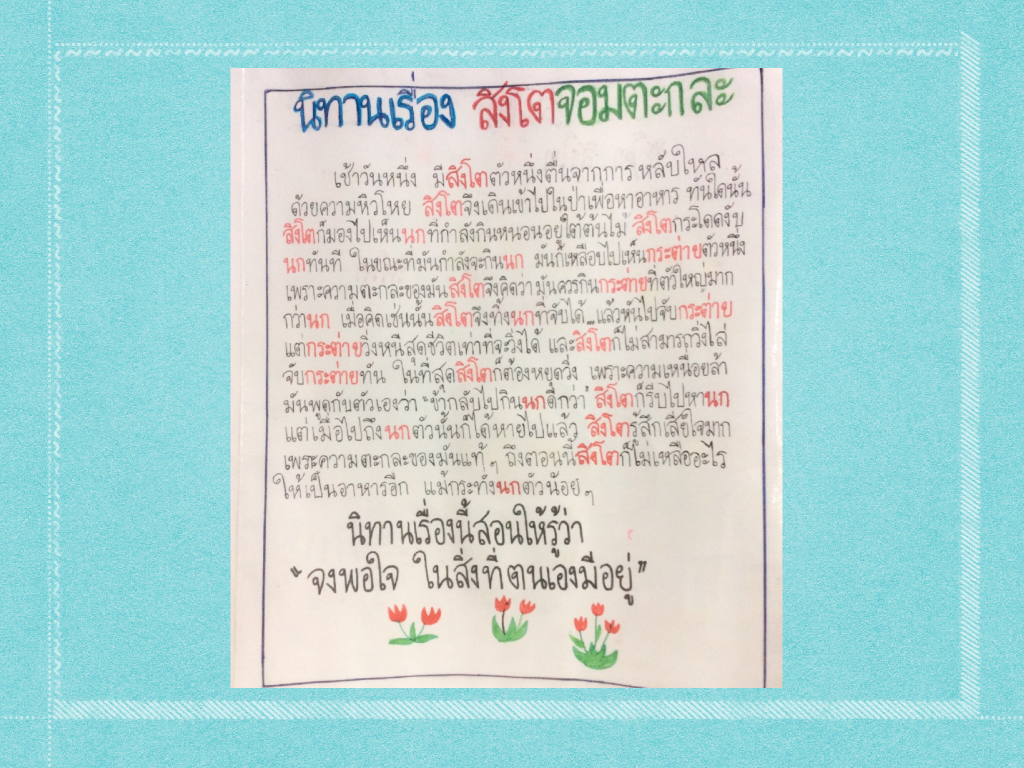 นิทานเรื่อง สิงโตจอมตะกละ
เช้าวันหนึ่ง มีสิงโตตัวหนึ่งตื่นจากการหลับใหล
ด้วยความหิวโหย สิงโตจึงเดินเข้าไปในป่าเพื่อหาอาหาร ทันใดนั้น
สิงโตก็มองไปเห็นนกที่กำลังกินหนอนอยู่ใต้ต้นไม้ สิงโตกระโดดงับ
นกทันที ในขณะที่มันกำลังจะกินนก มันก็เหลือบไปเห็นกระต่ายตัวหนึ่ง
เพราะความตะกละของมันสิงโตจึงคิดว่ามันควรกินกระต่ายที่ตัวใหญ่มาก
กว่านก เมื่อคิดเช่นนั้นสิงโตจึงทิ้งนกที่จับได้ แล้วหันไปจับกระต่าย
แต่กระต่ายวิ่งหนีสุดชีวิตเท่าที่จะวิ่งได้ และสิงโตก็ไม่สามารถวิ่งไล่
จับกระต่ายทัน ในที่สุดสิงโตก็ต้องหยุดวิ่ง เพราะความเหนื่อยล้า
มันพูดกับตัวเองว่า "ข้ากลับไปกินนกดีกว่า" สิงโตก็รีบไปหานก
แต่เมื่อไปถึงนกตัวนั้นก็ได้หายไปแล้ว สิงโตรู้สึกเสียใจมาก
เพระความตะกละของมันแท้ๆ ถึงตอนนี้สิงโตก็ไม่เหลืออะไร
ให้เป็นอาหารอีก แม้กระทั่งนกตัวน้อยๆ
นิทานเรื่องนี้สอนให้รู้ว่า
"จงพอใจ ในสิ่งที่ตนเองมีอยู่"